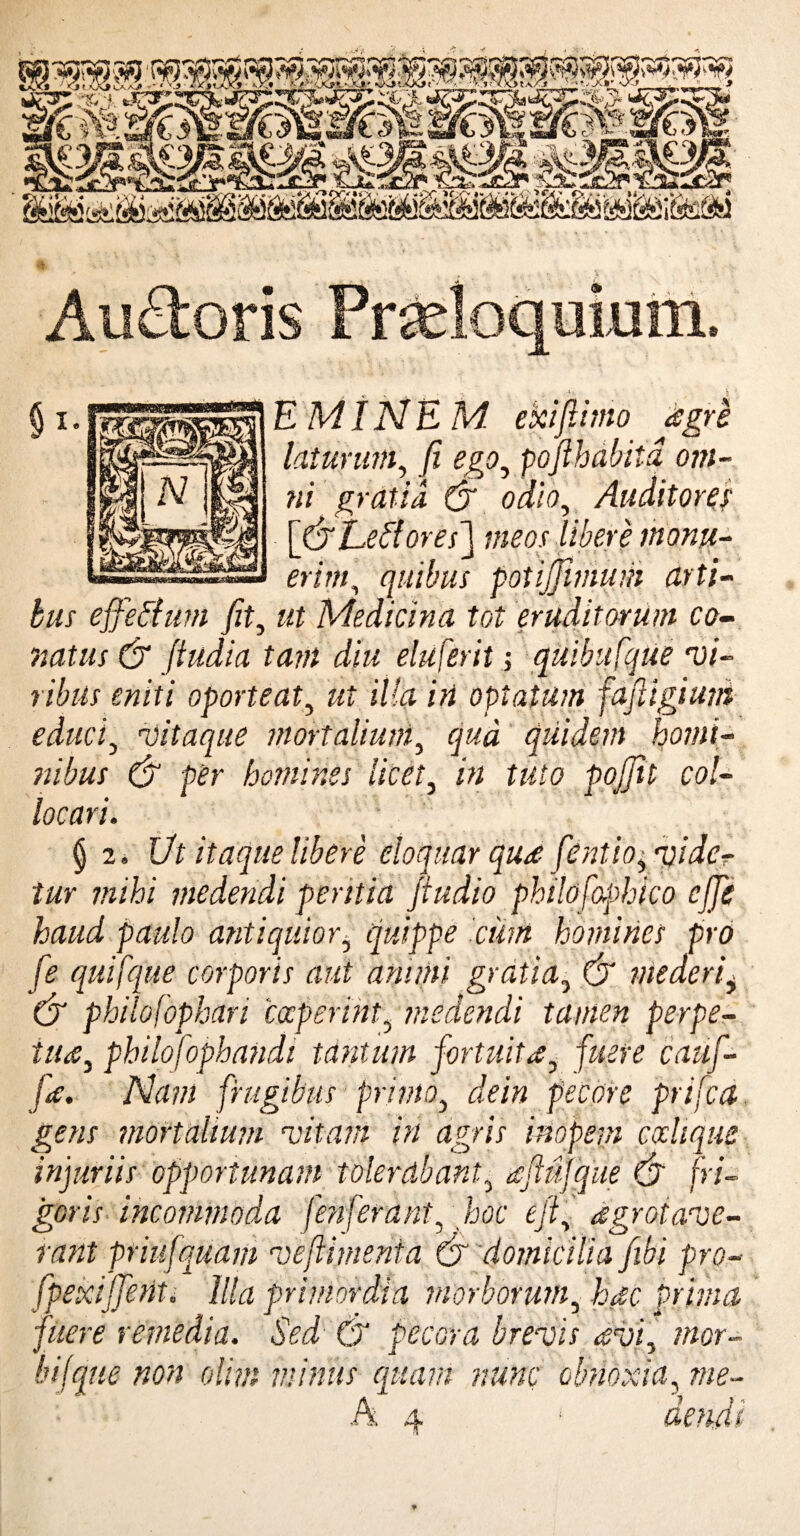 Auctoris Præloquium.
§ 1. NEMINEM exiſtimo ægrè
laturum, ſi ego, poſthabitâ om-
ni gratiâ & odio, Auditores
[& Lectores] meos liberè monu-
erim, quibus potiſſimum arti-
bus effectum ſit, ut Medicina tot eruditorum co-
natus & ſtudia tam diu eluſerit; quibuſque vi-
ribus eniti oporteat, ut illa in optatum faſtigium
educi, vitaque mortalium, quà quidem homi-
nibus & per homines licet, in tuto poſſit col-
locari.
§ 2. Ut itaque liberè eloquar quæ ſentio, vide-
tur mihi medendi peritia ſtudio philoſophico eſſe
haud paulo antiquior, quippe cùm homines pro
ſe quiſque corporis aut animi gratia, & mederi,
& philoſophari cœperint, medendi tamen perpe-
tuæ, philoſophandi tantum fortuitæ, fuere cauſ-
ſæ. Nam frugibus primo, dein pecore priſca
gens mortalium vitam in agris inopem cœlique
injuriis opportunam tolerabant, æſtûſque & fri-
goris incommoda ſenſerant, hoc eſt, ægrotave-
rant priuſquam veſtimenta & domicilia ſibi pro-
ſpexiſſent. Illa primordia morborum, hæc prima
fuere remedia. Sed & pecora brevis ævi, mor-
biſque non olim minus quam nunc obnoxia, me-
A 4 dendi